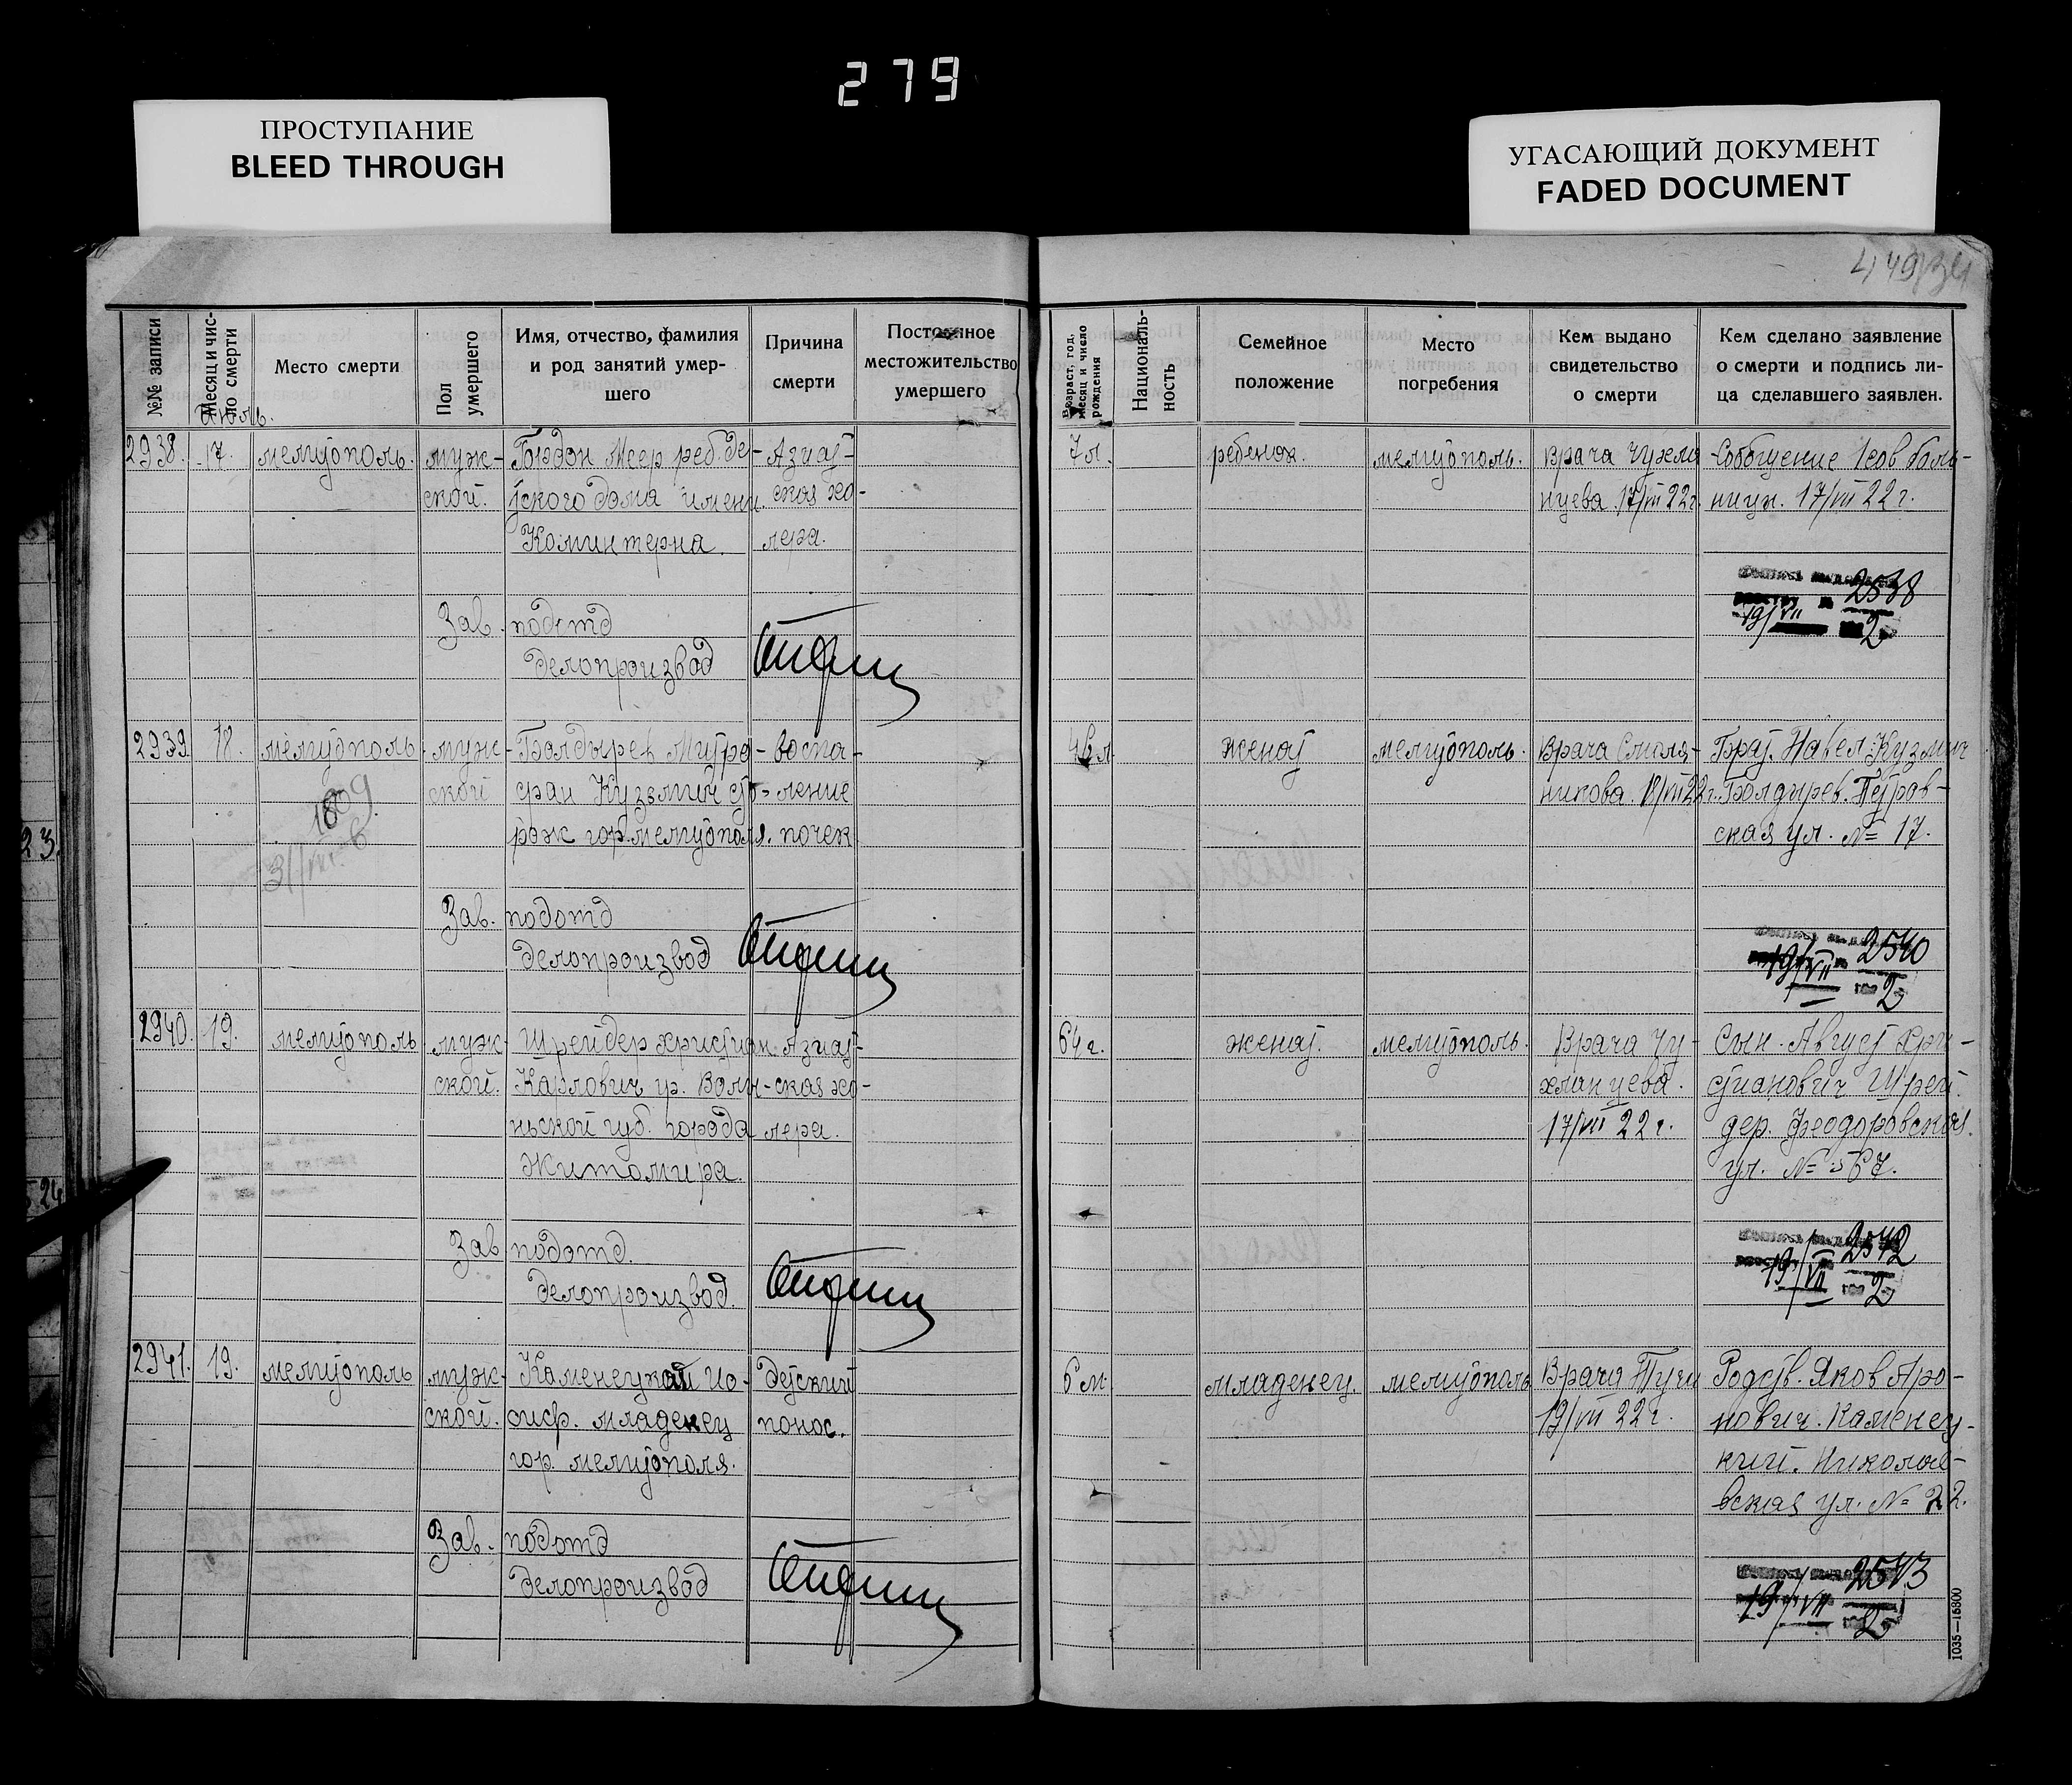 279
ПРОСТУПАНИЕ
BLEED THROUGH
УГАСАЮЩИЙ ДОКУМЕНТ
FADED DOCUMENT
№№ записи
Месяц и чис-
ло смерти
Место смерти
Пол
умершего
Имя, отчество, фамилия
и род занятий умер-
шего
Причина
смерти
Постоянное
местожительство
умершего
Возраст, год,
месяц и число
рождения
Националь-
ность
Семейное
положение
Место
погребения
Кем выдано
свидетельство
о смерти
Кем сделано заявление
о смерти и подпись ли-
ца сделавшего заявлен.
2938. 17. мелитополь. муж-
ской.
Гордон Меер реб. де-
тского дома имени
Коминтерна.
Азиат-
ская хо-
лера.
7 л. ребенок. мелитополь.
Врача Чухла
нцева. 17/VII 22 г.
Сообщение 1 сов боль-
ницы. 17/VII 22 г.
2538
19/VII 2
Зав. подотд
делопроизвод
2939 18. мелитополь муж-
ской
Болдырев Митро-
фан Кузьмич
гор. мелитополя.
воспа-
ление
почек
женат мелитополь.
Врача Смоля-
никова. 18/VII 22 г.
Брат. Павел Кузмич
Болдырев. Петров-
ская ул. № 17.
1809
2540
19/VII 2
Зав. подотд
делопроизвод
2940. 19. мелитополь муж-
ской.
Шрейдер Христиан
Карлович гр. Волы-
нской губ. города
Житомира.
Азиат-
ская хо-
лера.
64 г. женат. мелитополь.
Врача Чу-
хланцева.
17/VII 22 г.
Сын. Август Хри-
стианович Шрей
дер. Феодоровская
ул. № 567.
2542
19/VII 2
Зав подотд.
делопроизвод.
2941. 19. мелитополь муж-
ской.
Каменецкий Ио-
сиф. младенец
гор. мелитополя.
Детский
понос.
6 м. младенец. мелитополь
Врача
19/VII 22 г.
Родств. Яков Аро-
нович. Каменец-
кий. Николае-
вская ул. № 22.
2543
19/VII 2
Зав. подотд
делопроизвод
1035—15800